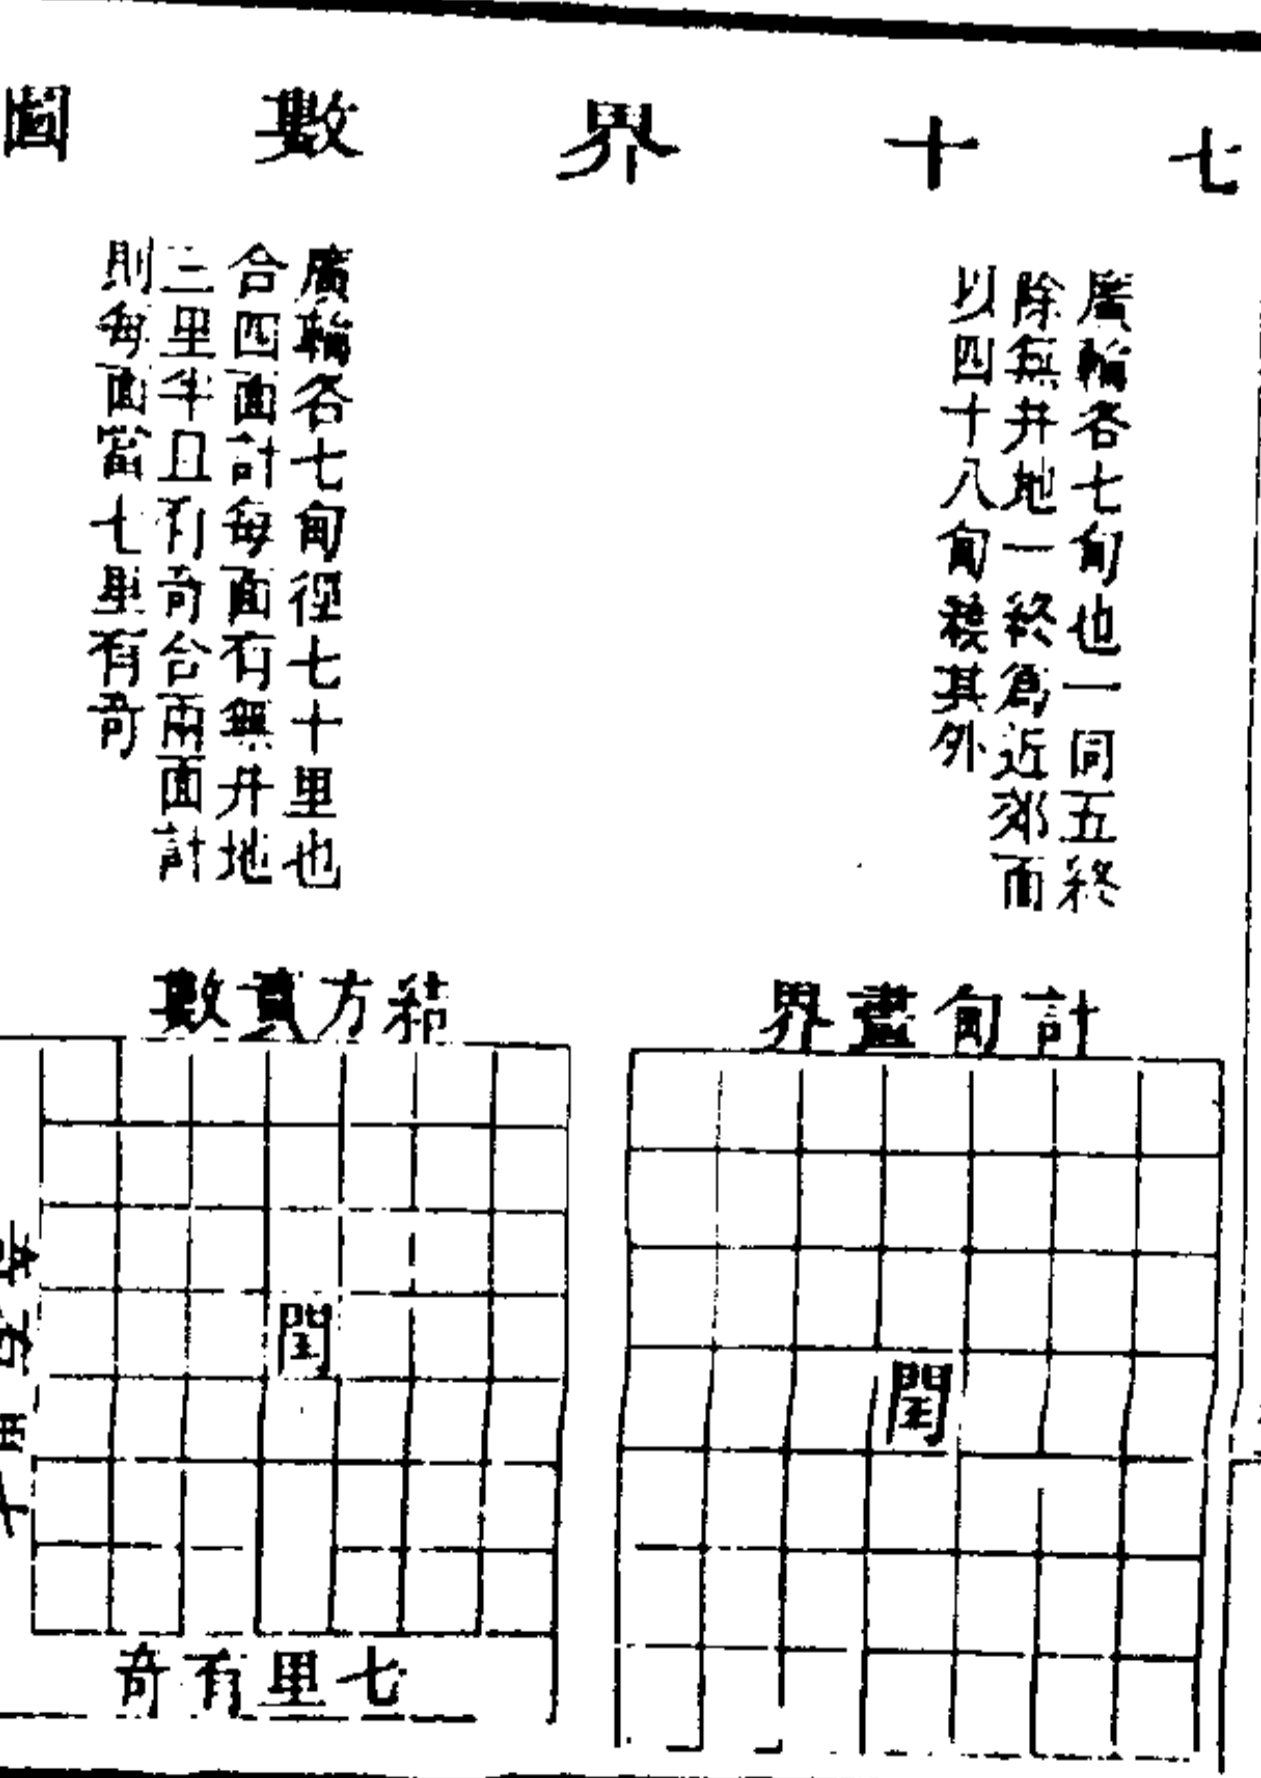 七十界數圖
廣輪各七甸也一同五終
除無井地一終為近郊而
以四十八甸積其外
計甸畫界
閏
廣輪各七甸徑七十里也
合四面計每面有無井地
三里半且有奇合兩面計
則每面當七里有奇
積方實數
閏
七里有奇